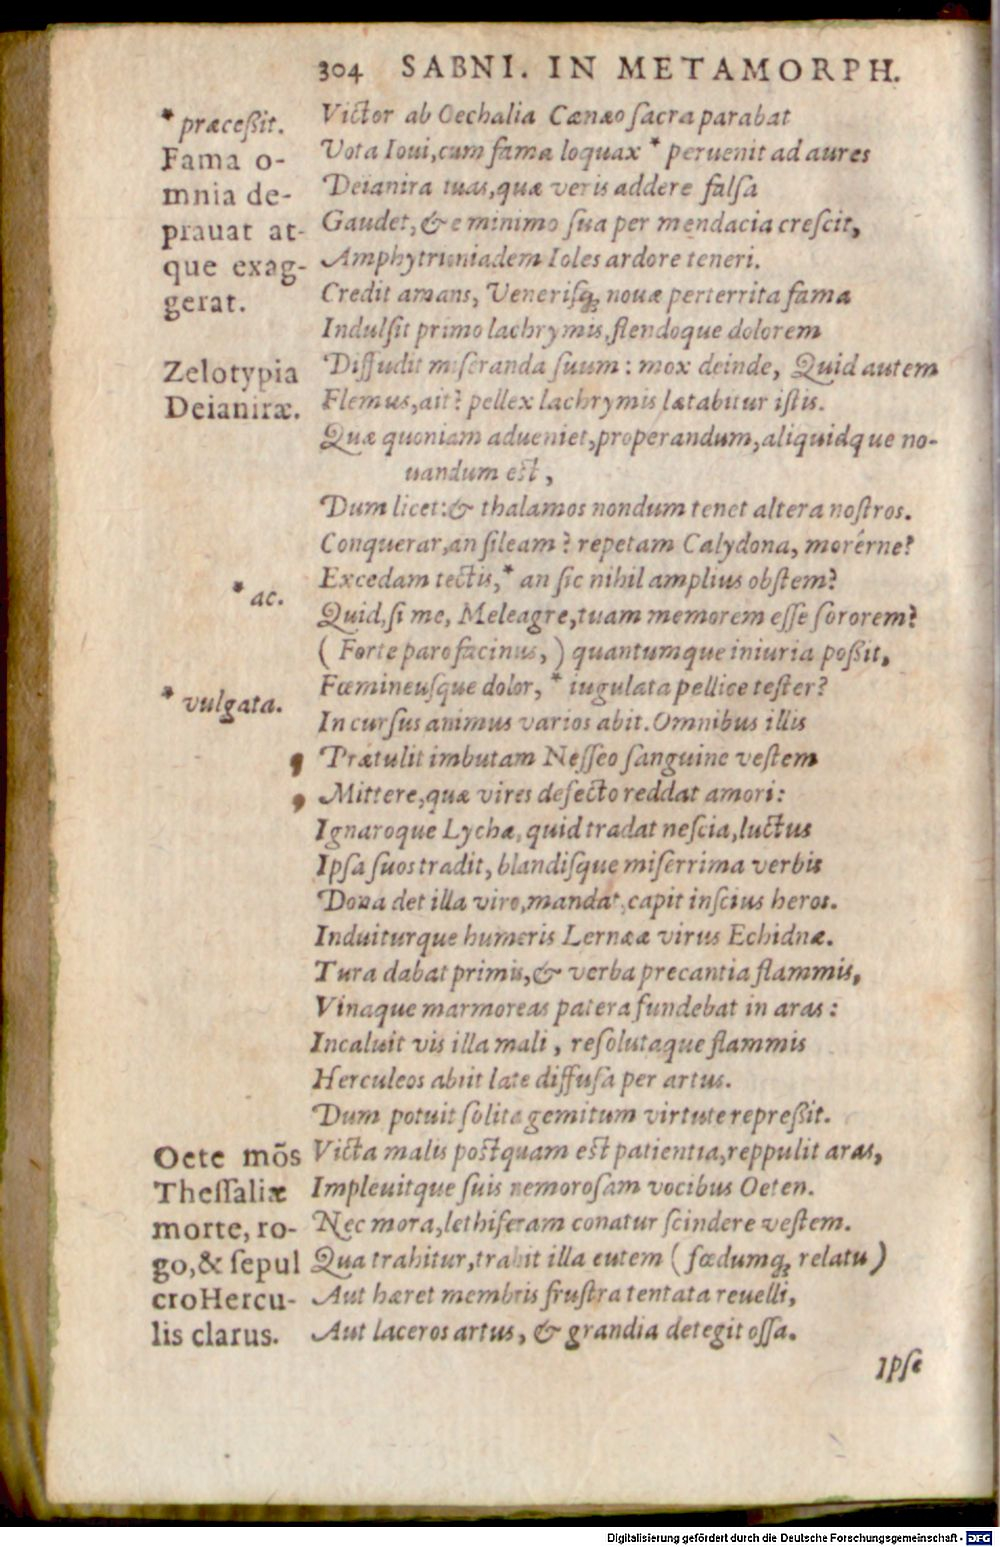 304 SABNI. IN METAMORPH.
* præceßit.
Fama o-
mnia de-
prauat at-
que exag-
gerat.
Zelotypia
Deianiræ.
* ac.
* vulgata.
Oete mõs
Thessaliæ
morte, ro-
go, & sepul
cro Hercu-
lis clarus.
Victor ab Oechalia Cænæo sacra parabat
Vota Ioui, cum fama loquax * peruenit ad aures
Deianira tuas, quæ veris addere falsa
Gaudet, & e minimo sua per mendacia crescit,
Amphytrioniadem Ioles ardore teneri.
Credit amans, Venerisq; nouæ perterrita fama
Indulsit primo lachrymis, flendoque dolorem
Diffudit miseranda suum: mox deinde, Quid autem
Flemus, ait? pellex lachrymis lætabitur istis.
Quæ quoniam adueniet, properandum, aliquidque no-
uandum est,
Dum licet: & thalamos nondum tenet altera nostros.
Conquerar, an sileam? repetam Calydona, morérne?
Excedam tectis, * an sic nihil amplius obstem?
Quid, si me, Meleagre, tuam memorem esse sororem?
(Forte paro facinus,) quantumque iniuria poßit,
Fœmineusque dolor, * iugulata pellice tester?
In cursus animus varios abit. Omnibus illis
Prætulit imbutam Nesseo sanguine vestem
Mittere, quæ vires defecto reddat amori:
Ignaroque Lychæ, quid tradat nescia, luctus
Ipsa suos tradit, blandisque miserrima verbis
Dona det illa viro, mandat, capit inscius heros.
Induiturque humeris Lernææ virus Echidnæ.
Tura dabat primis, & verba precantia flammis,
Vinaque marmoreas patera fundebat in aras:
Incaluit vis illa mali, resolutaque flammis
Herculeos abiit late diffusa per artus.
Dum potuit solita gemitum virtute repreßit.
Victa malis postquam est patientia, reppulit aras,
Impleuitque suis nemorosam vocibus Oeten.
Nec mora, lethiferam conatur scindere vestem.
Qua trahitur, trahit illa cutem (fœdumq; relatu)
Aut hæret membris frustra tentata reuelli,
Aut laceros artus, & grandia detegit ossa.
Ipse
Digitalisierung gefördert durch die Deutsche Forschungsgemeinschaft - DFG